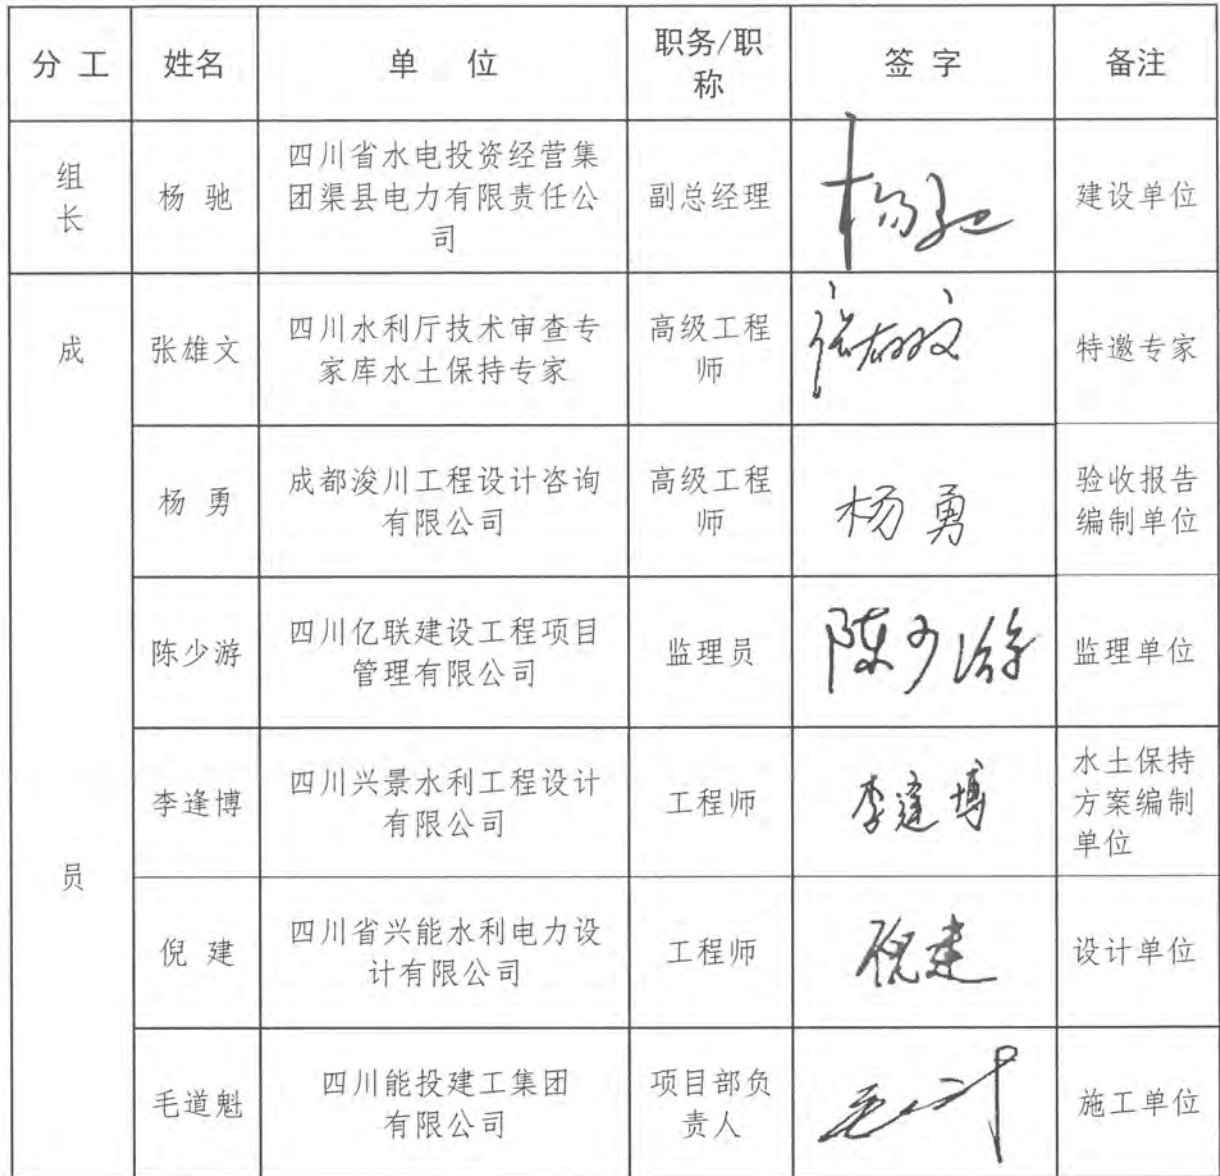 分 工 姓名 单 位 职务/职称 签 字 备注
组长 杨 驰 四川省水电投资经营集团渠县电力有限责任公司 副总经理 杨驰 建设单位
成员 张雄文 四川水利厅技术审查专家库水土保持专家 高级工程师 张雄文 特邀专家
杨 勇 成都浚川工程设计咨询有限公司 高级工程师 杨勇 验收报告编制单位
陈少游 四川亿联建设工程项目管理有限公司 监理员 陈少游 监理单位
李逢博 四川兴景水利工程设计有限公司 工程师 李逢博 水土保持方案编制单位
倪 建 四川省兴能水利电力设计有限公司 工程师 倪建 设计单位
毛道魁 四川能投建工集团有限公司 项目部负责人 施工单位